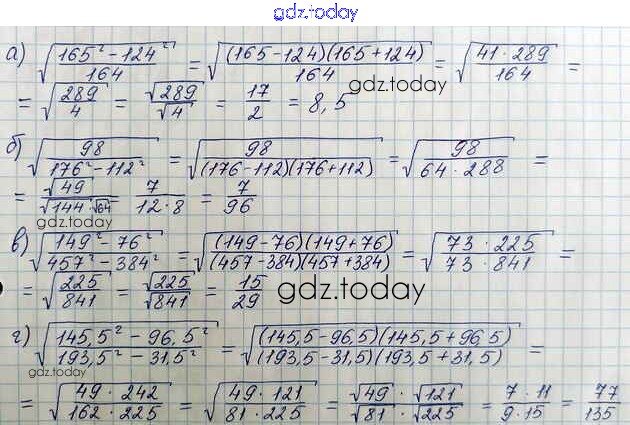 gdz.today
а) √((165² − 124²)/164) = √((165−124)(165+124)/164) = √((41 · 289)/164) =
= √(289/4) = √289/√4 = 17/2 = 8,5
gdz.today
б) √(98/(176² − 112²)) = √(98/((176−112)(176+112))) = √(98/(64 · 288)) =
= √49/(√144 · √64) = 7/(12·8) = 7/96
gdz.today
в) √((149² − 76²)/(457² − 384²)) = √((149−76)(149+76)/((457−384)(457+384))) = √((73 · 225)/(73 · 841)) =
= √(225/841) = √225/√841 = 15/29
gdz.today
г) √((145,5² − 96,5²)/(193,5² − 31,5²)) = √((145,5−96,5)(145,5+96,5)/((193,5−31,5)(193,5+31,5))) =
gdz.today
= √((49 · 242)/(162 · 225)) = √((49 · 121)/(81 · 225)) = (√49 · √121)/(√81 · √225) = (7 · 11)/(9 · 15) = 77/135